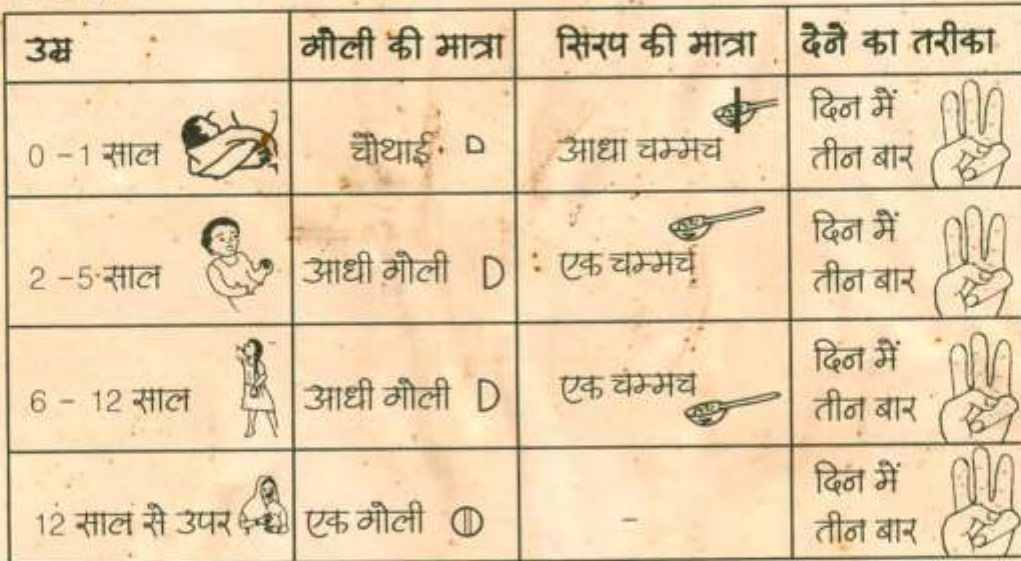 उम्र गोली की मात्रा सिरप की मात्रा देने का तरीका
0 - 1 साल चौथाई आधा चम्मच दिन में
तीन बार
2 - 5 साल आधी गोली एक चम्मच दिन में
तीन बार
6 - 12 साल आधी गोली एक चम्मच दिन में
तीन बार
12 साल से उपर एक गोली - दिन में
तीन बार